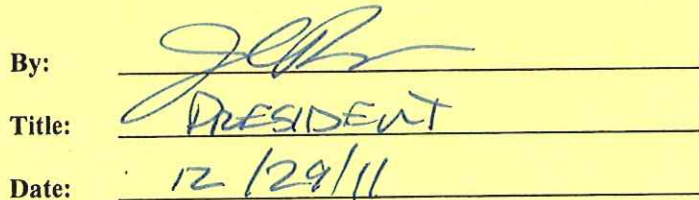 By:
Title: PRESIDENT
Date: 12/29/11